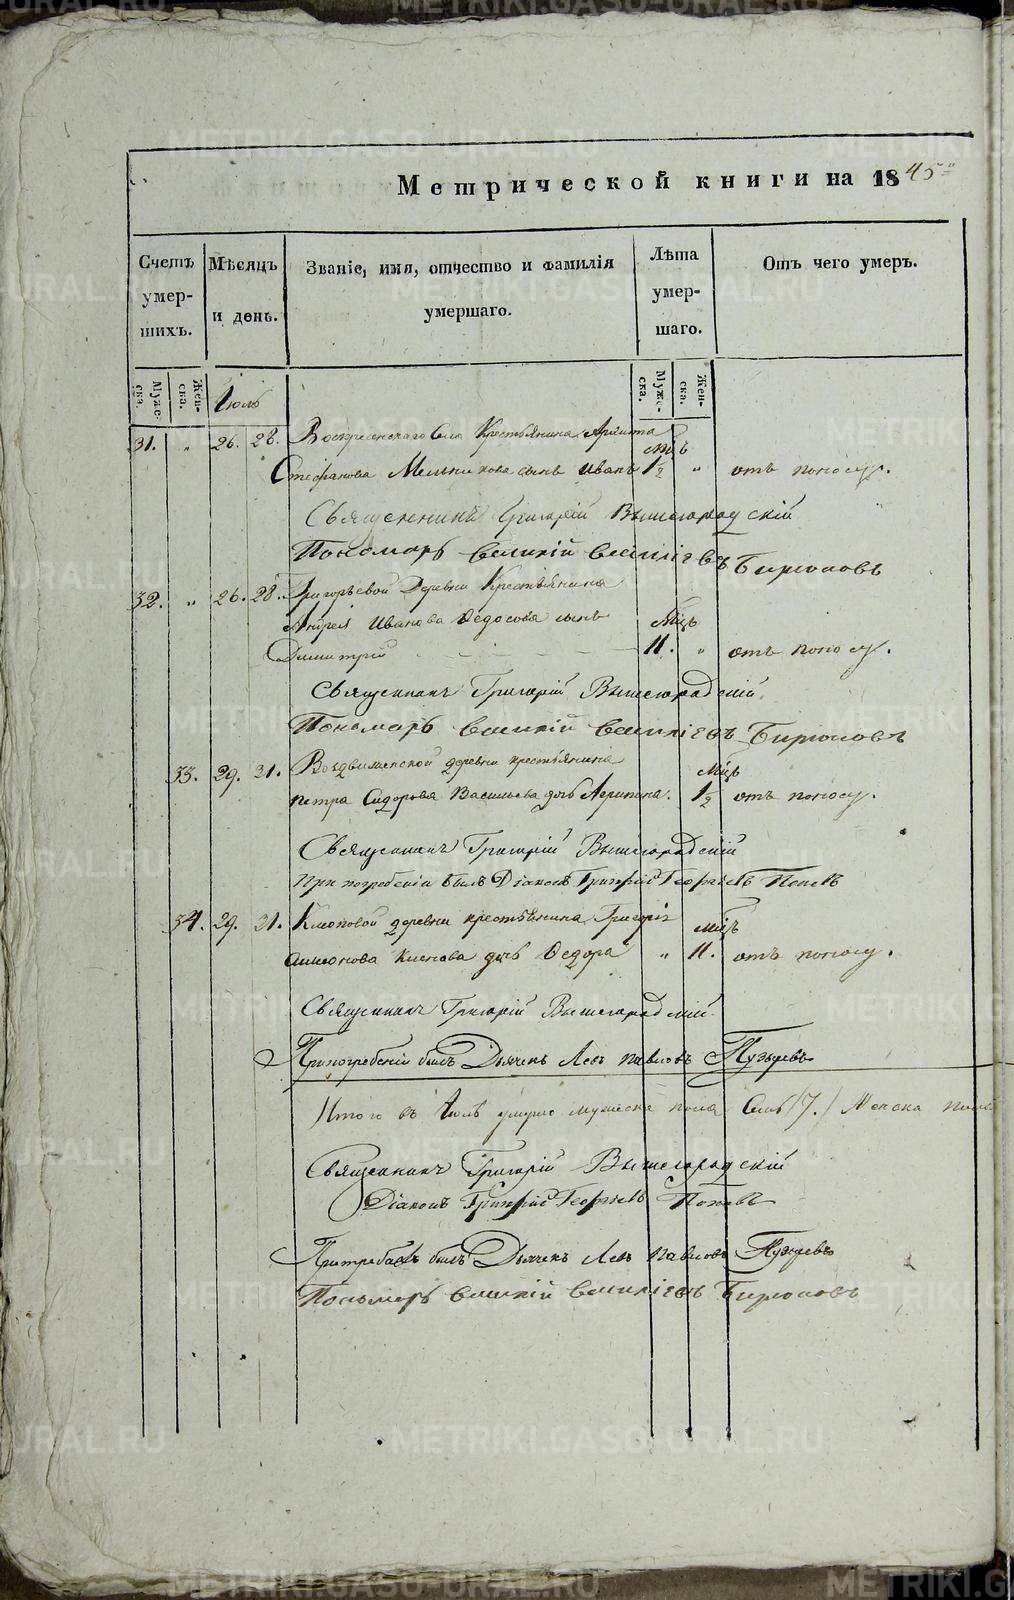 Метрической книги на 1845
Счетъ умер- шихъ.
Мѣсяцъ и день.
Званіе, имя, отчество и фамилія умершаго.
Лѣта умер- шаго.
Отъ чего умеръ.
Муже- ска.
Жен- ска.
Іюль
Муже- ска.
Жен- ска.
31. „ 26. 28. Воскресенскаго села Крестьянина
Стефанова Мельникова сынъ Иванъ 1½ „ отъ поносу.
Священникъ Григорій Вышегородскій
Пономарь Василій Василіевъ Бирюковъ
32. „ 26. 28. Григорьевой Деревни Крестьянина
Андрея Иванова Ѳедосова сынъ Мцъ
Димитрій 11. „ отъ поносу.
Священникъ Григорій Вышегородскій
Пономарь Василій Василіевъ Бирюковъ
33. 29. 31. Воздвиженской деревни крестьянина Мцъ
Петра Сидорова Васильева дчь Агрипина. 1½ отъ поносу.
Священникъ Григорій Вышегородскій
При погребеніи былъ Діаконъ Григорій Георгіевъ Поповъ
34. 29. 31. Клюковой деревни крестьянина Григорія Мцъ
дчь Ѳедора „ 11. отъ поносу.
Священникъ Григорій Вышегородскій
При погребеніи былъ Дьячекъ Левъ Павловъ Пузыревъ
Итого въ Іюлѣ умерло мужеска пола Семь /7./ Женска пола
Священникъ Григорій Вышегородскій
Діаконъ Григорій Георгіевъ Поповъ
былъ Дьячекъ Левъ Павловъ Пузыревъ
Пономарь Василій Василіевъ Бирюковъ
METRIKI.GASO-URAL.RU